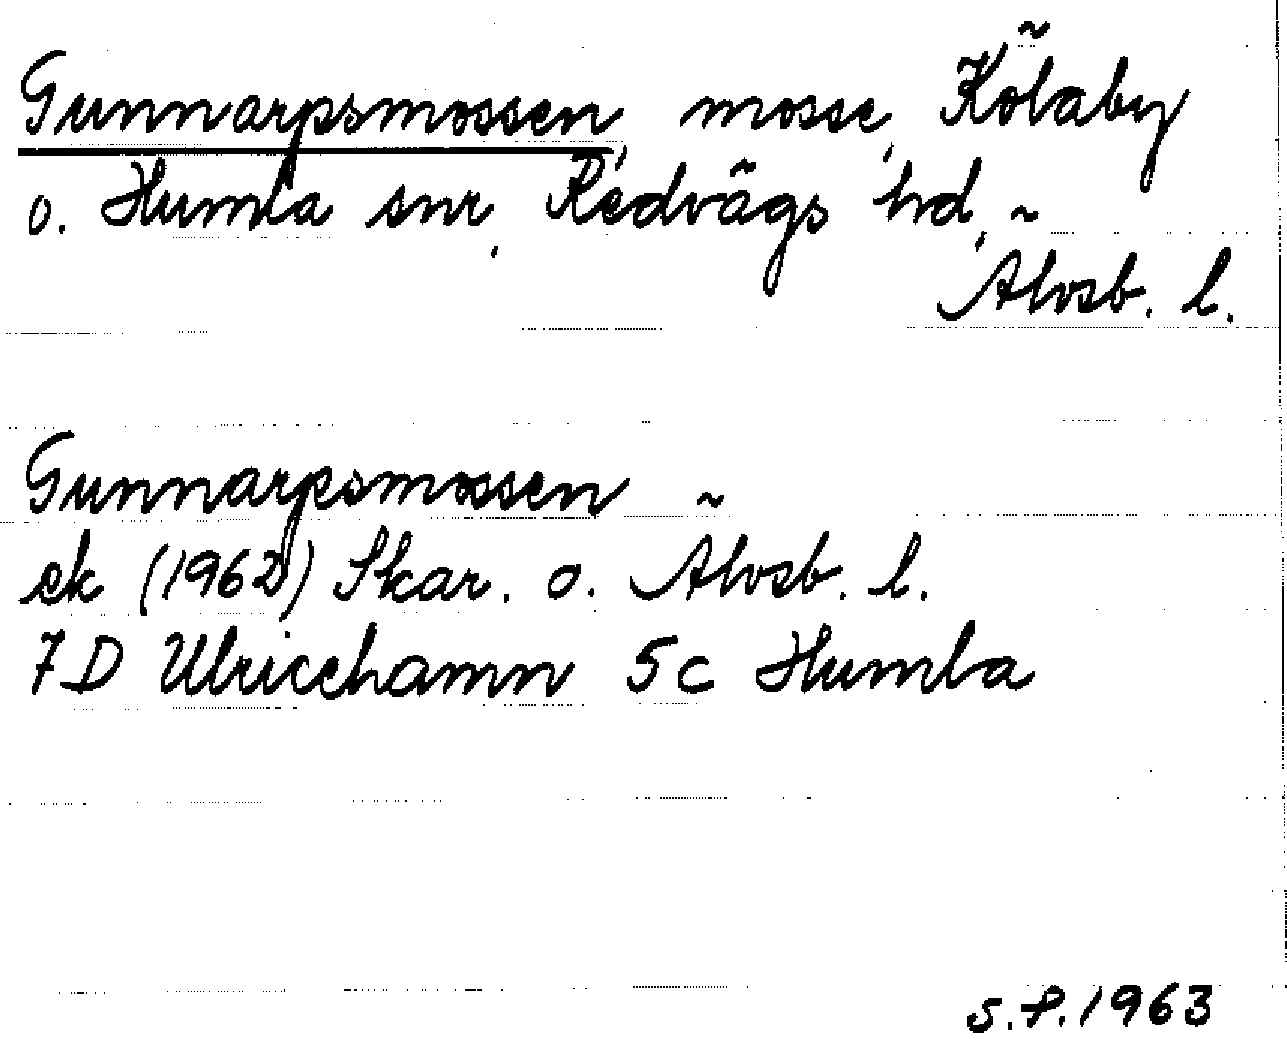 Gunnarpsmossen, mosse, Kölaby
o. Humla snr, Redvägs hd,
Älvsb. l.
Gunnarpsmossen
ek (1962) Skar. o. Älvsb. l.
7D Ulricehamn 5c Humla
S.P. 1963